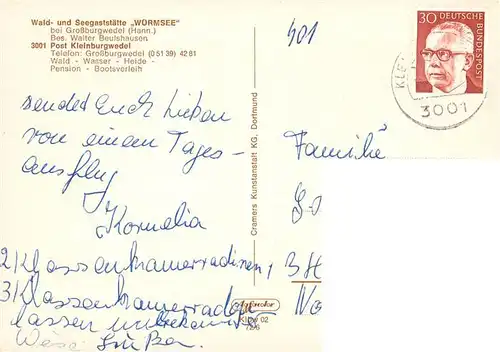 Wald- und Seegaststätte „WORMSEE"
bei Großburgwedel (Hann.)
Bes. Walter Beulshausen
3001 Post Kleinburgwedel
Telefon: Großburgwedel (0 51 39) 42 81
Wald - Wasser - Heide -
Pension - Bootsverleih
401
30 DEUTSCHE BUNDESPOST
KLEI
3001
sendet Euch Lieben
von einem Tages-
ausflug
Kornelia
2 Klassenkameradinnen,
3 Klassenkameraden
lassen unbekannter
Weise Grüßen
Cramers Kunstanstalt KG, Dortmund
Familie
3 H
Agfacolor
Klbw 02